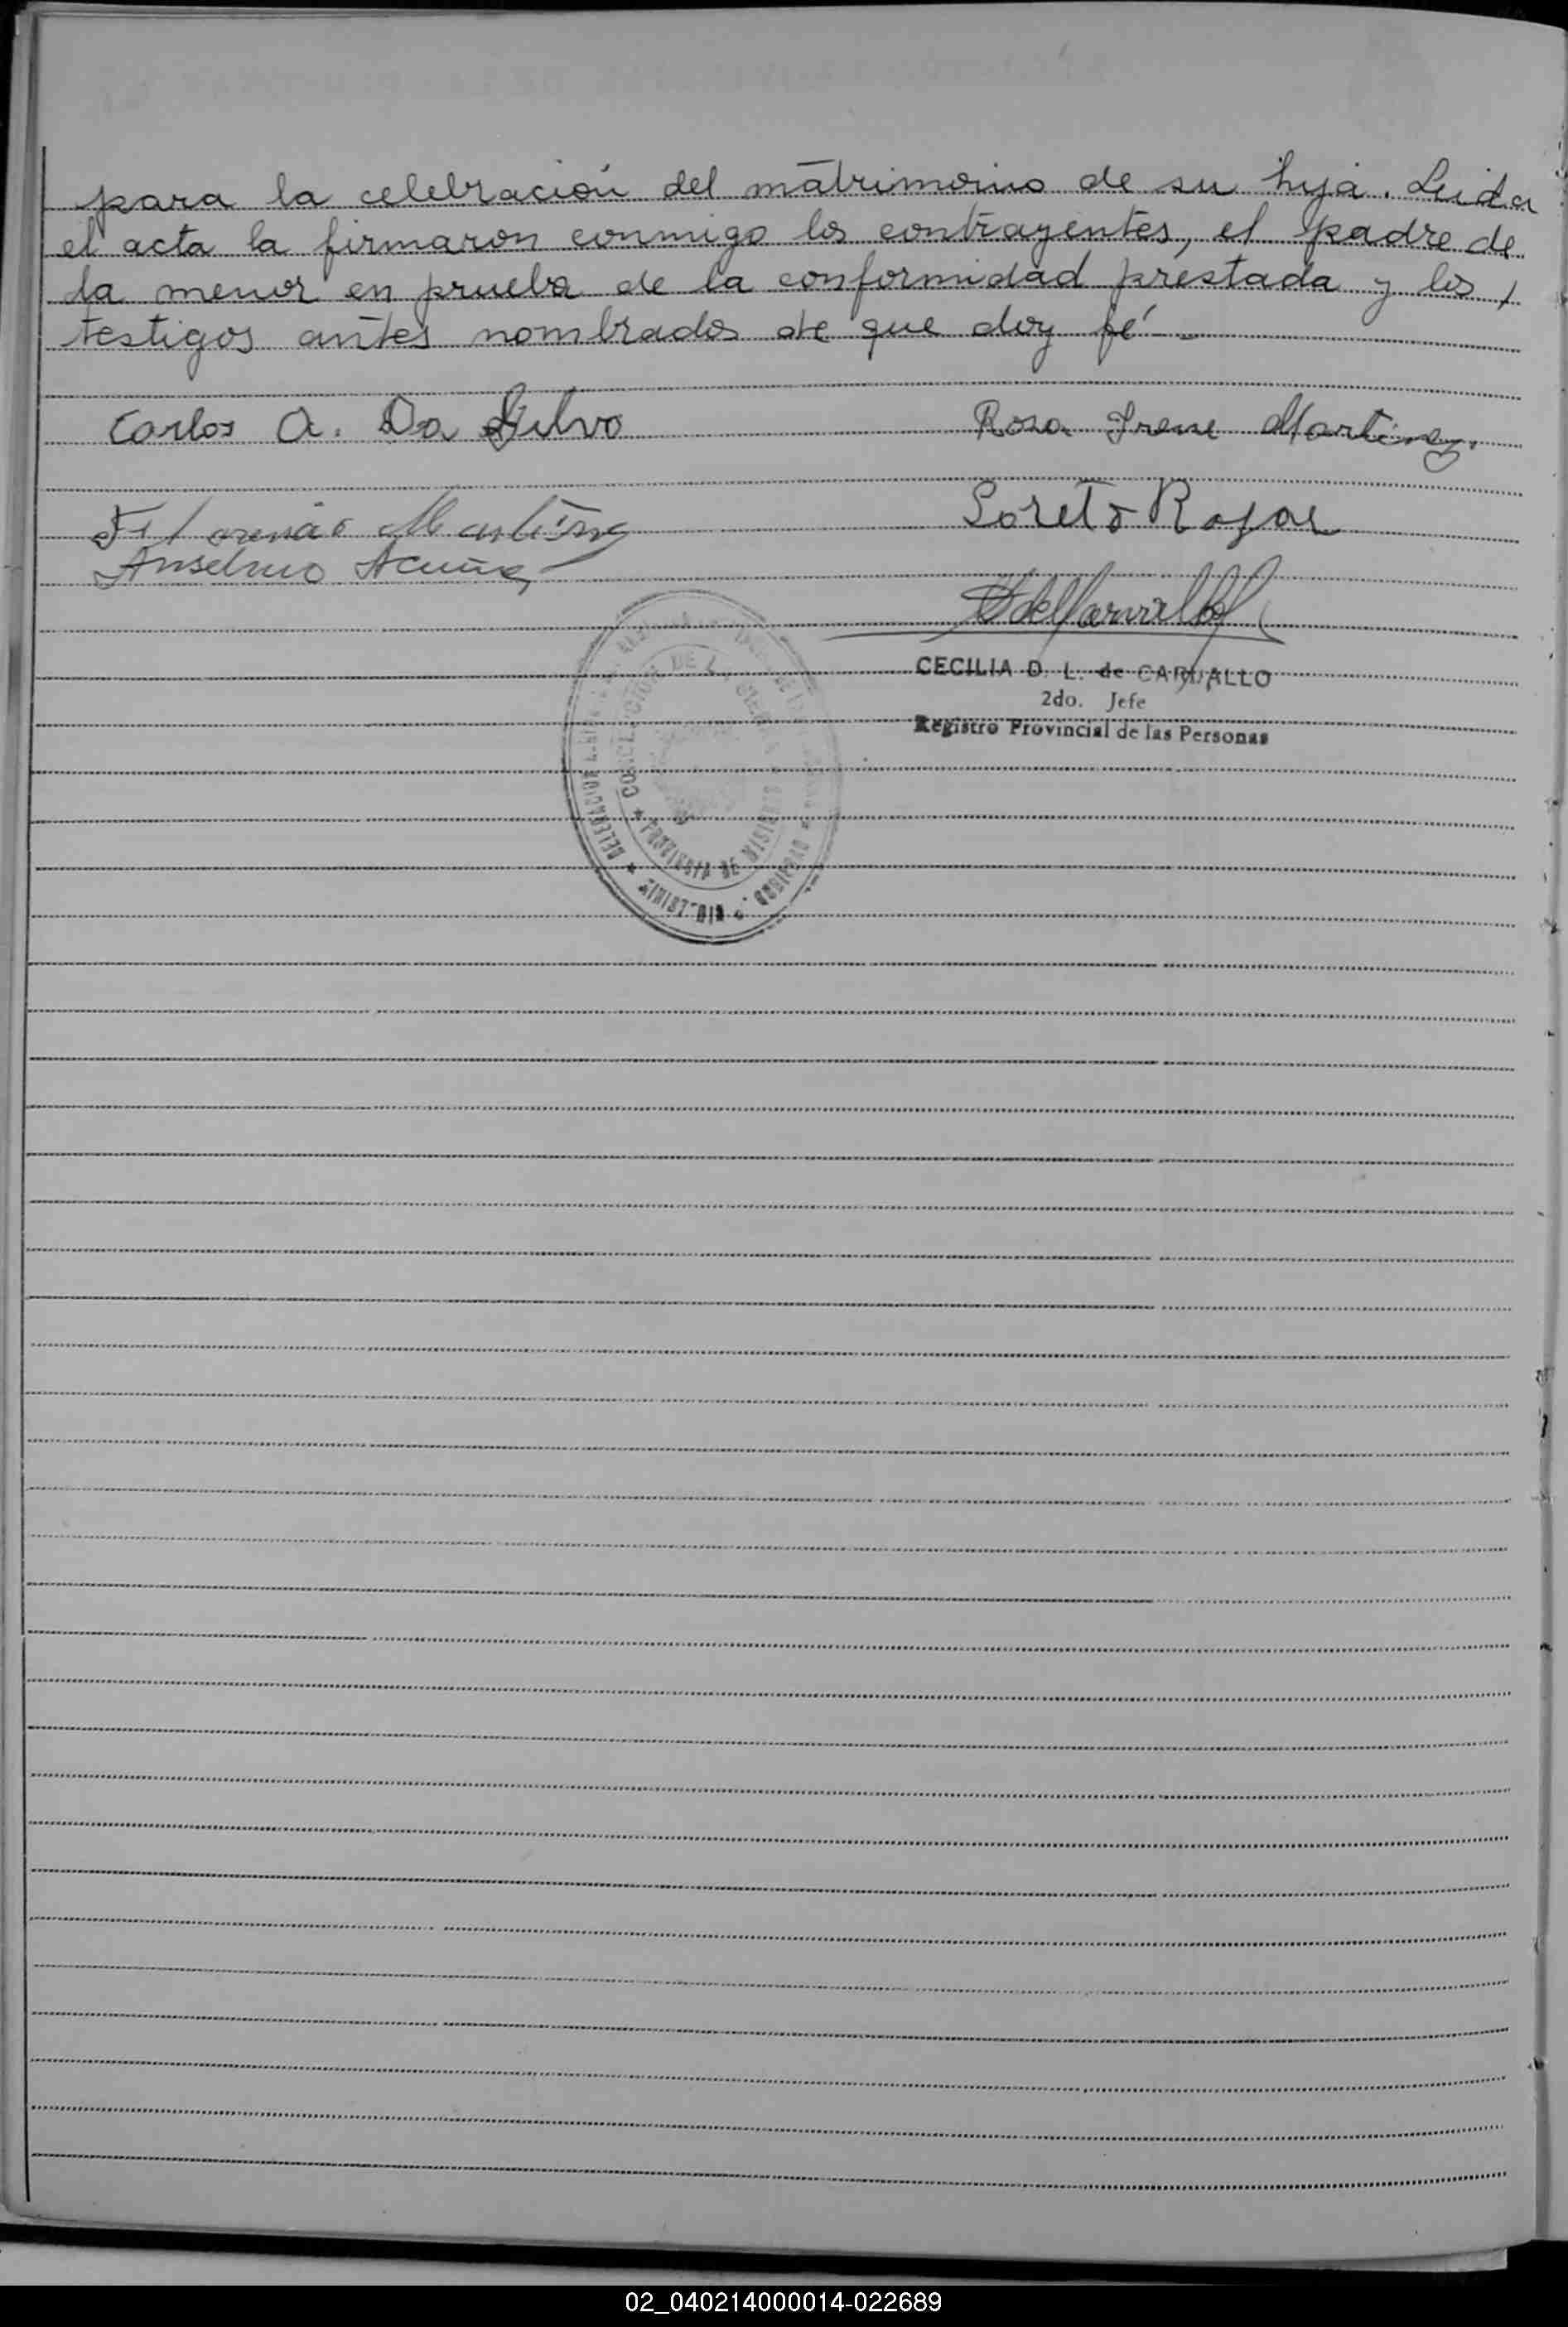 para la celebración del matrimonio de su hija. Leida
el acta la firmaron conmigo los contrayentes, el padre de
la menor en prueba de la conformidad prestada y los /
testigos antes nombrados de que doy fé -
Carlos A. Da Silva
Rosa Irene Martinez.
Martinez
Loreto Rojas
Anselmo Acuña
CECILIA D. L. de CARVALLO
2do. Jefe
Registro Provincial de las Personas
CONCEPCION DE LA SIERRA
★ PROVINCIA DE MISIONES
02_040214000014-022689